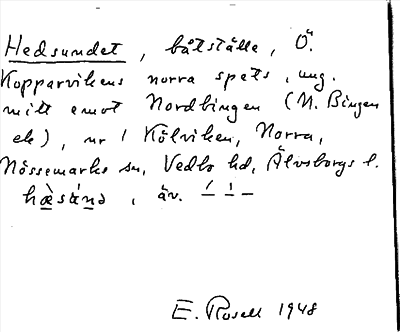 Hedsundet, båtställe, Ö.
Kopparvikens norra spets, ung.
mitt emot Nordbingen (N. Bingen
ek), nr 1 Kölviken, Norra,
Nössemarks sn, Vedbo hd, Älvsborgs l.
hæ̀sánd, äv. –́ –̀ –
E. Rosell 1948